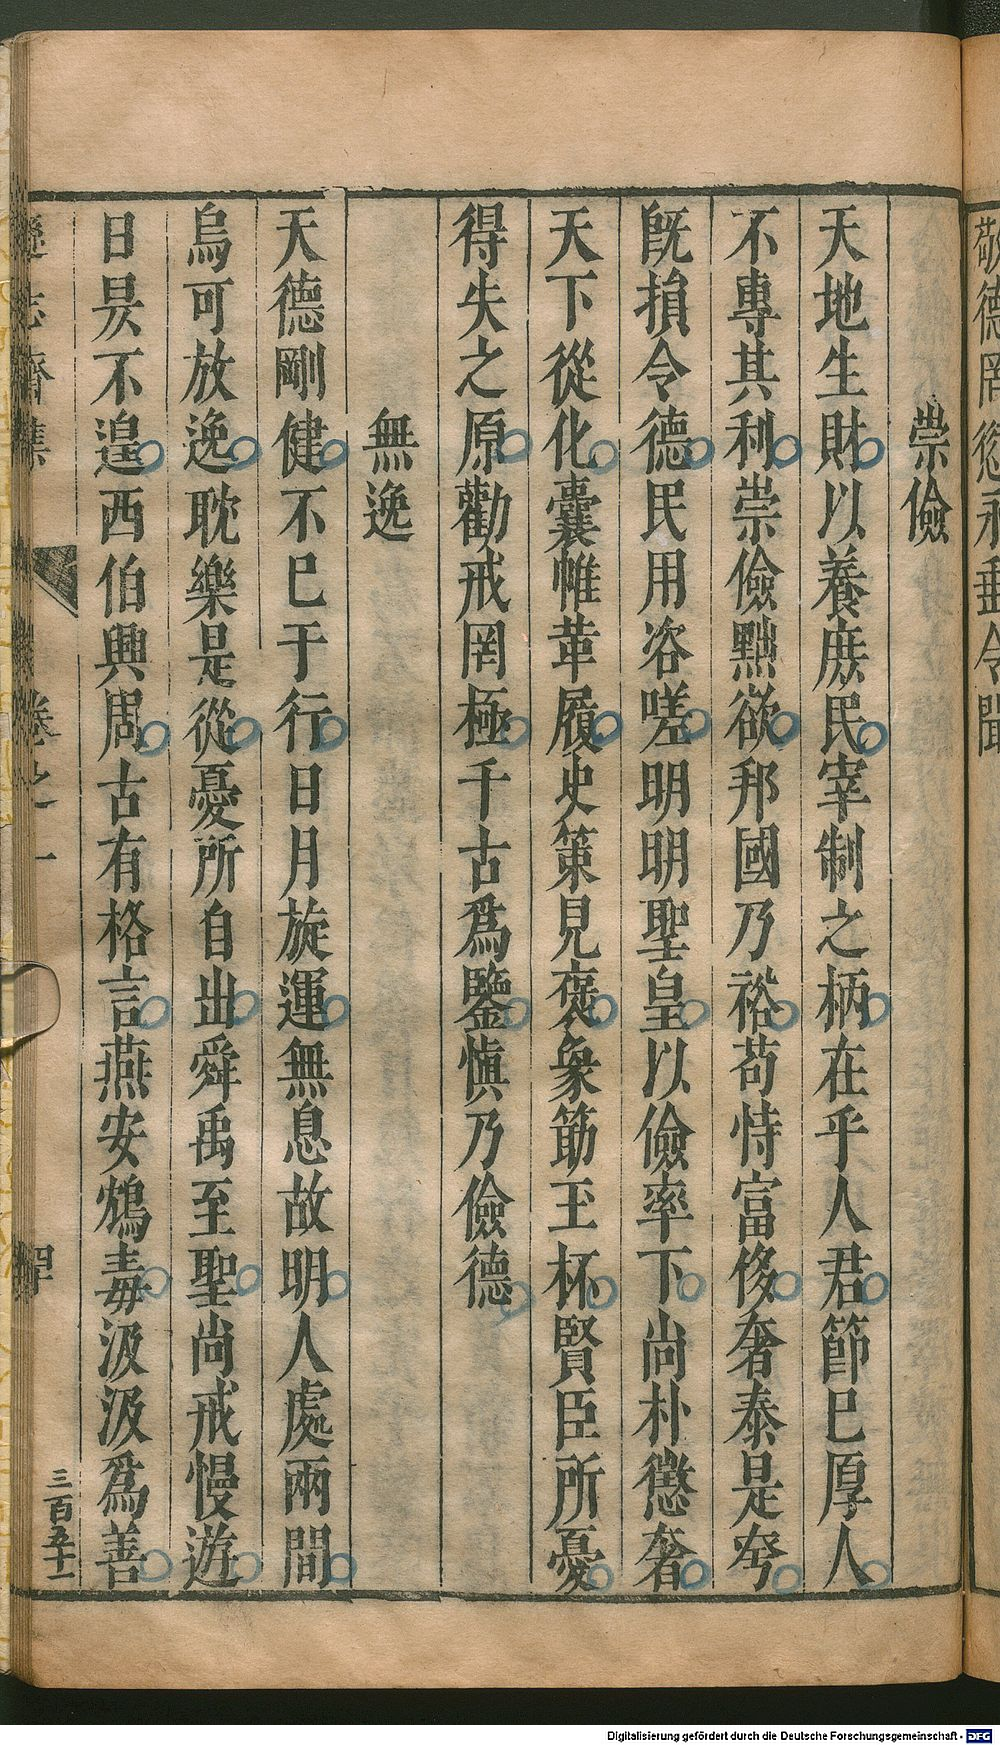 敬德罔愆永垂令聞
崇儉
天地生財以養庶民宰制之柄在乎人君節已厚人
不專其利崇儉黜欲邦國乃裕苟恃富侈奢泰是窮
旣損令德民用咨嗟明明聖皇以儉率下尚朴懲奢
天下從化囊帷革履史策見襃象筯玉杯賢臣所憂
得失之原勸戒罔極千古爲鑒愼乃儉德
無逸
天德剛健不已于行日月旋運無息故明人處兩間
烏可放逸耽樂是從憂所自出舜禹至聖尚戒慢遊
日昃不遑西伯興周古有格言燕安鴆毒汲汲爲善
遜志齋集
卷之一
三百五十一
Digitalisierung gefördert durch die Deutsche Forschungsgemeinschaft - DFG